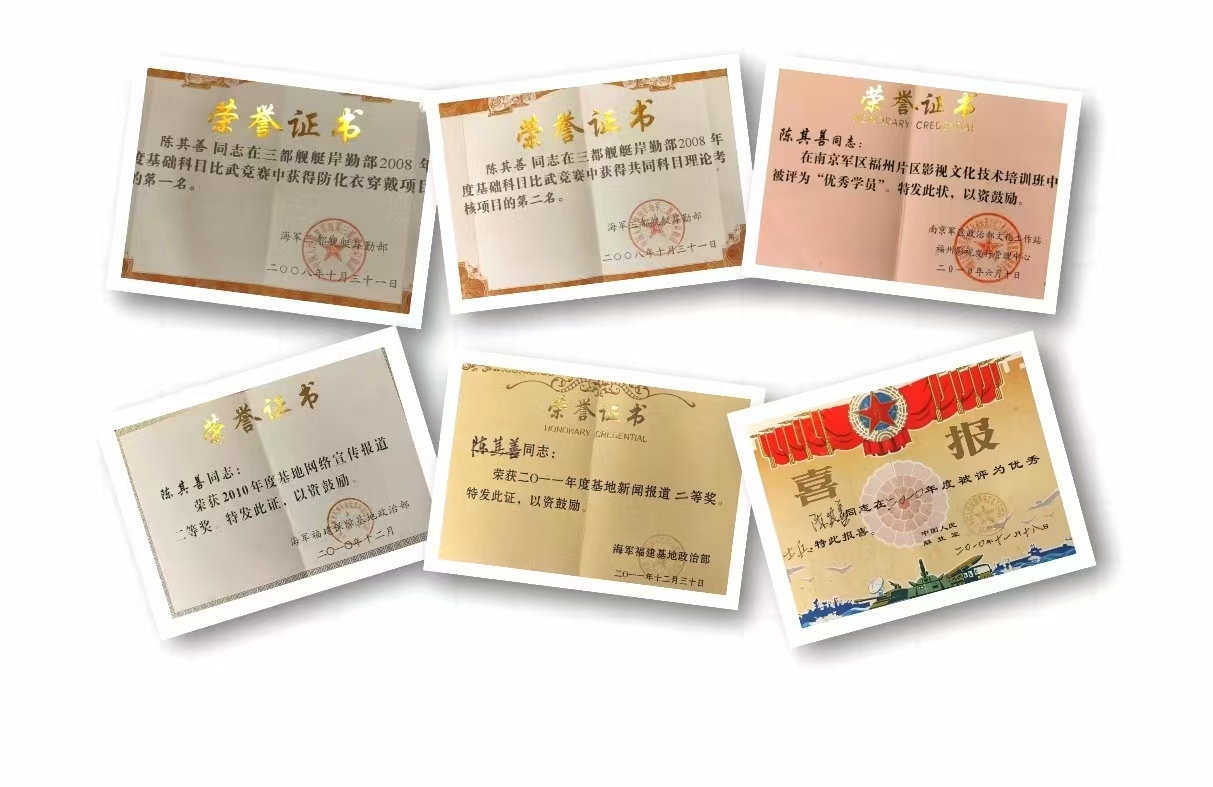 荣誉证书
陈其善同志在三都舰艇岸勤部2008年
度基础科目比武竞赛中获得防化衣穿戴项目
的第一名。
海军三都舰艇岸勤部
二〇〇八年十月三十一日
荣誉证书
陈其善同志在三都舰艇岸勤部2008年
度基础科目比武竞赛中获得共同科目理论考
核项目的第二名。
海军三都舰艇岸勤部
二〇〇八年十月三十一日
荣誉证书
HONORARY CREDENTIAL
陈其善同志：
在南京军区福州片区影视文化技术培训班中
被评为“优秀学员”。特发此状，以资鼓励。
南京军区政治部文化工作站
福州影视发行管理中心
二〇一〇年六月十日
荣誉证书
陈其善同志：
荣获2010年度基地网络宣传报道
二等奖。特发此证，以资鼓励。
海军福建保障基地政治部
二〇一〇年十二月
荣誉证书
HONORARY CREDENTIAL
陈其善同志：
荣获二〇一一年度基地新闻报道二等奖。
特发此证，以资鼓励。
海军福建基地政治部
二〇一一年十二月三十日
喜报
陈其善同志在2010年度被评为优秀
士兵，特此报喜。
中国人民
解放军
二〇一〇年十一月十八日